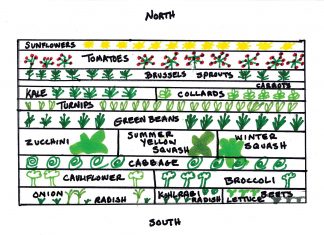 NORTH
SUNFLOWERS
TOMATOES
BRUSSELS SPROUTS
CARROTS
KALE COLLARDS
TURNIPS
GREEN BEANS
ZUCCHINI SUMMER YELLOW SQUASH WINTER SQUASH
CABBAGE
CAULIFLOWER BROCCOLI
ONION RADISH KOHLRABI RADISH LETTUCE BEETS
SOUTH